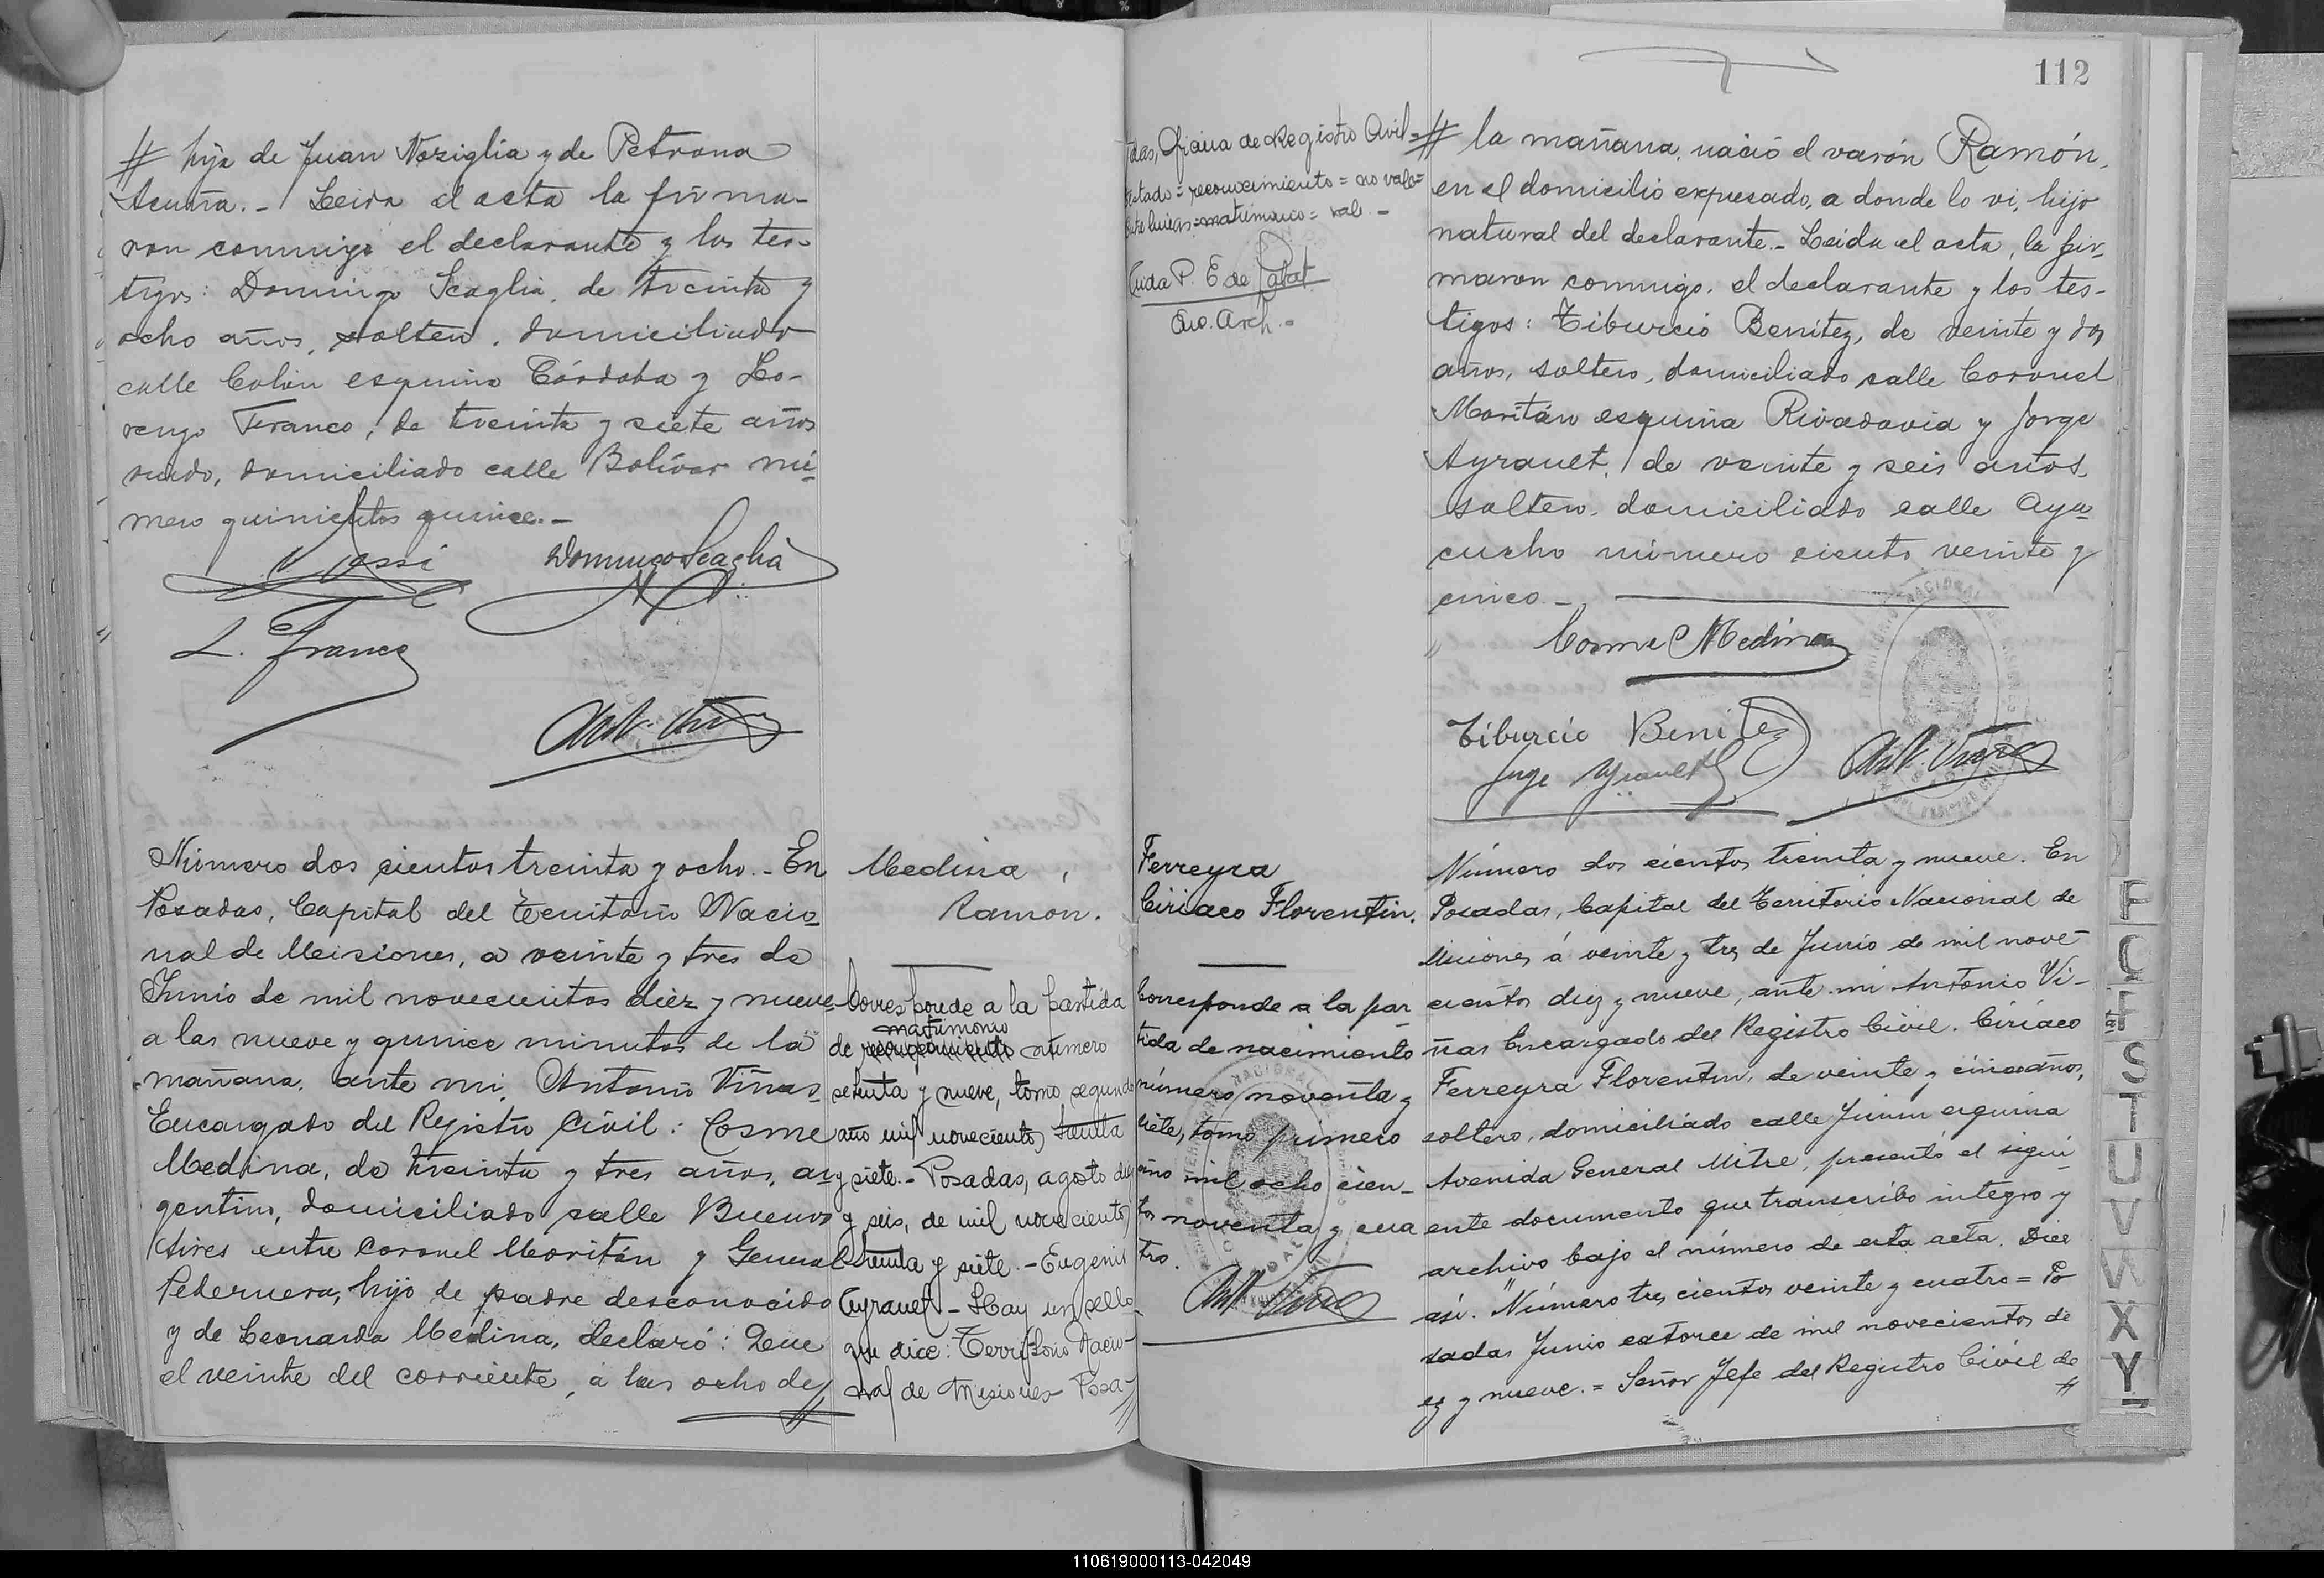 # hija de Juan Noziglia y de Petrona
Acuña.- Leida el acta la firma-
ron conmigo el declarante y los tes-
tigos: Domingo Scaglia, de treinta y
ocho años, soltero, domiciliado
calle Colón esquina Córdoba y Lo-
renzo Franco, de treinta y siete años
viudo, domiciliado calle Bolívar nú-
mero quinientos quince.-
Domingo Scaglia
L. Franco
Número dos cientos treinta y ocho.- En
Posadas, Capital del Territorio Nacio-
nal de Misiones, a veinte y tres de
Junio de mil novecientos diez y nueve
a las nueve y quince minutos de la
mañana, ante mi, Antonio Viñas
Encargado del Registro Civil: Cosme
Medina, de treinta y tres años, ar-
gentino, domiciliado calle Buenos
Aires entre Coronel Moritán y General
Pedernera, hijo de padre desconocido
y de Leonarda Medina, declaró: Que
el veinte del corriente, a las ocho de //
Medina,
Ramón.
Corresponde a la partida
matrimonio
de reconocimiento número
setenta y nueve, tomo segundo
año mil novecientos treinta
y siete.- Posadas, agosto
y seis, de mil novecientos
treinta y siete.- Eugenio
Ayrault - Hay un sello
que dice: Territorio Nacio-
nal de Misiones Posa- //
das, Oficina de Registro Civil=
testado= reconocimiento= no vale=
entre lineas=matrimonio= vale -
P. E. de
Arch.-
112
# la mañana, nació el varón Ramón,
en el domicilio expresado, a donde lo vi, hijo
natural del declarante.- Leida el acta, la fir-
maron conmigo, el declarante y los tes-
tigos: Tiburcio Benitez, de veinte y dos
años, soltero, domiciliado calle Coronel
Moritán esquina Rivadavia y Jorge
Ayrault, de veinte y seis años,
soltero, domiciliado calle Aya-
cucho número ciento veinte y
cinco.-
Cosme Medina
Tiburcio Benitez
Jorge Ayrault
Ant. Viñas
Ferreyra
Ciriaco Florentin.
Corresponde a la par-
tida de nacimiento
número noventa y
siete, tomo primero
año mil ocho cien-
tos noventa y cua
tro.
Ant. Viñas
Número dos cientos treinta y nueve. En
Posadas, Capital del Territorio Nacional de
Misiones, á veinte y tres de Junio de mil nove-
cientos diez y nueve, ante mi Antonio Vi-
ñas Encargado del Registro Civil. Ciriaco
Ferreyra Florentin, de veinte y cinco años,
soltero, domiciliado calle Junin esquina
Avenida General Mitre, presentó el sigui-
ente documento que transcribo integro y
archivo bajo el número de esta acta. Dice
así. "Número tres cientos veinte y cuatro= Po
sadas Junio catorce de mil novecientos di
ez y nueve.= Señor Jefe del Registro Civil de //
F
S
T
U
V
W
X
Y
110619000113-042049